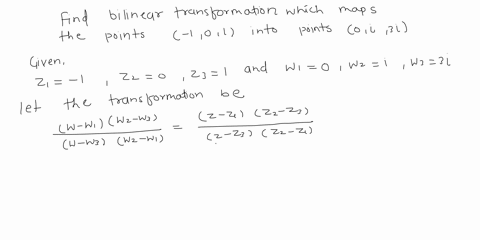 Find bilinear transformation which maps
the points (-1, 0, 1) into points (0, i, 3i)
Given,
Z₁ = -1 , Z₂ = 0 , Z₃ = 1 and W₁ = 0 , W₂ = 1 , W₃ = 3i
let the transformation be
(W-W₁) (W₂-W₃) / (W-W₃) (W₂-W₁) = (Z-Z₁) (Z₂-Z₃) / (Z-Z₃) (Z₂-Z₁)